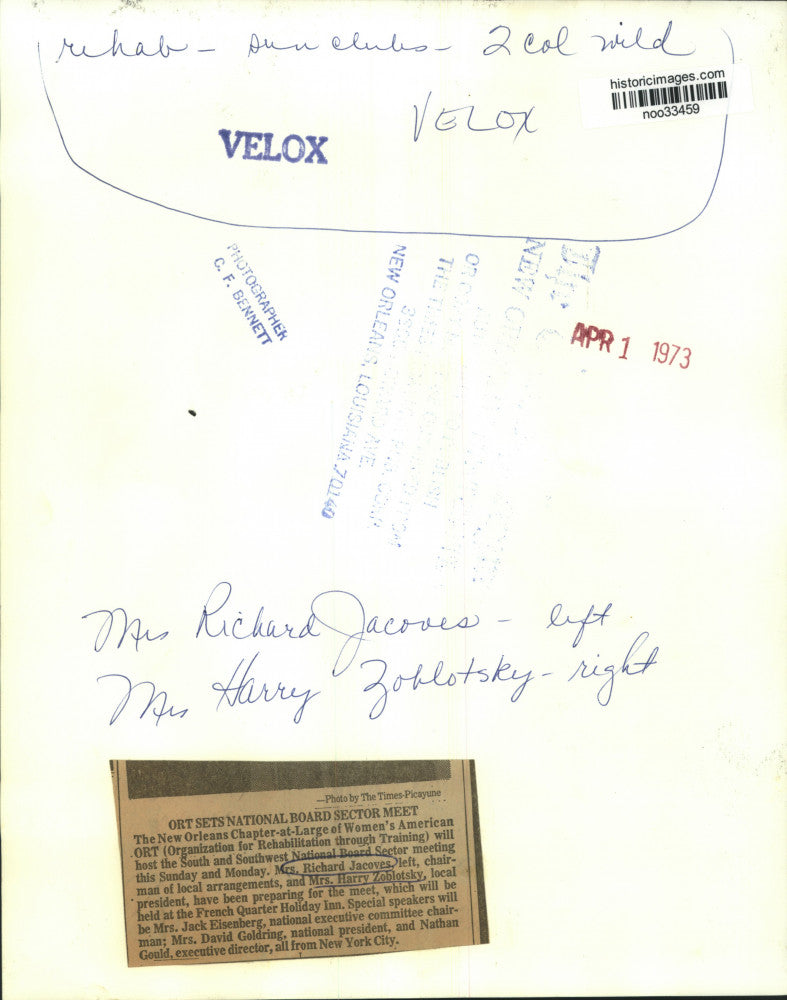 rehab - Sun clubs - 2 col wild
historicimages.com
noo33459
VELOX
VELOX
PHOTOGRAPHER
C. F. BENNETT
NEW ORLEANS, LOUISIANA 70140
AVE.
NEW
APR 1 1973
Mrs Richard Jacoves - left
Mrs Harry Zoblotsky - right
—Photo by The Times-Picayune
ORT SETS NATIONAL BOARD SECTOR MEET
The New Orleans Chapter-at-Large of Women's American
ORT (Organization for Rehabilitation through Training) will
host the South and Southwest National Board Sector meeting
this Sunday and Monday. Mrs. Richard Jacoves, left, chair-
man of local arrangements, and Mrs. Harry Zoblotsky, local
president, have been preparing for the meet, which will be
held at the French Quarter Holiday Inn. Special speakers will
be Mrs. Jack Eisenberg, national executive committee chair-
man; Mrs. David Goldring, national president, and Nathan
Gould, executive director, all from New York City.